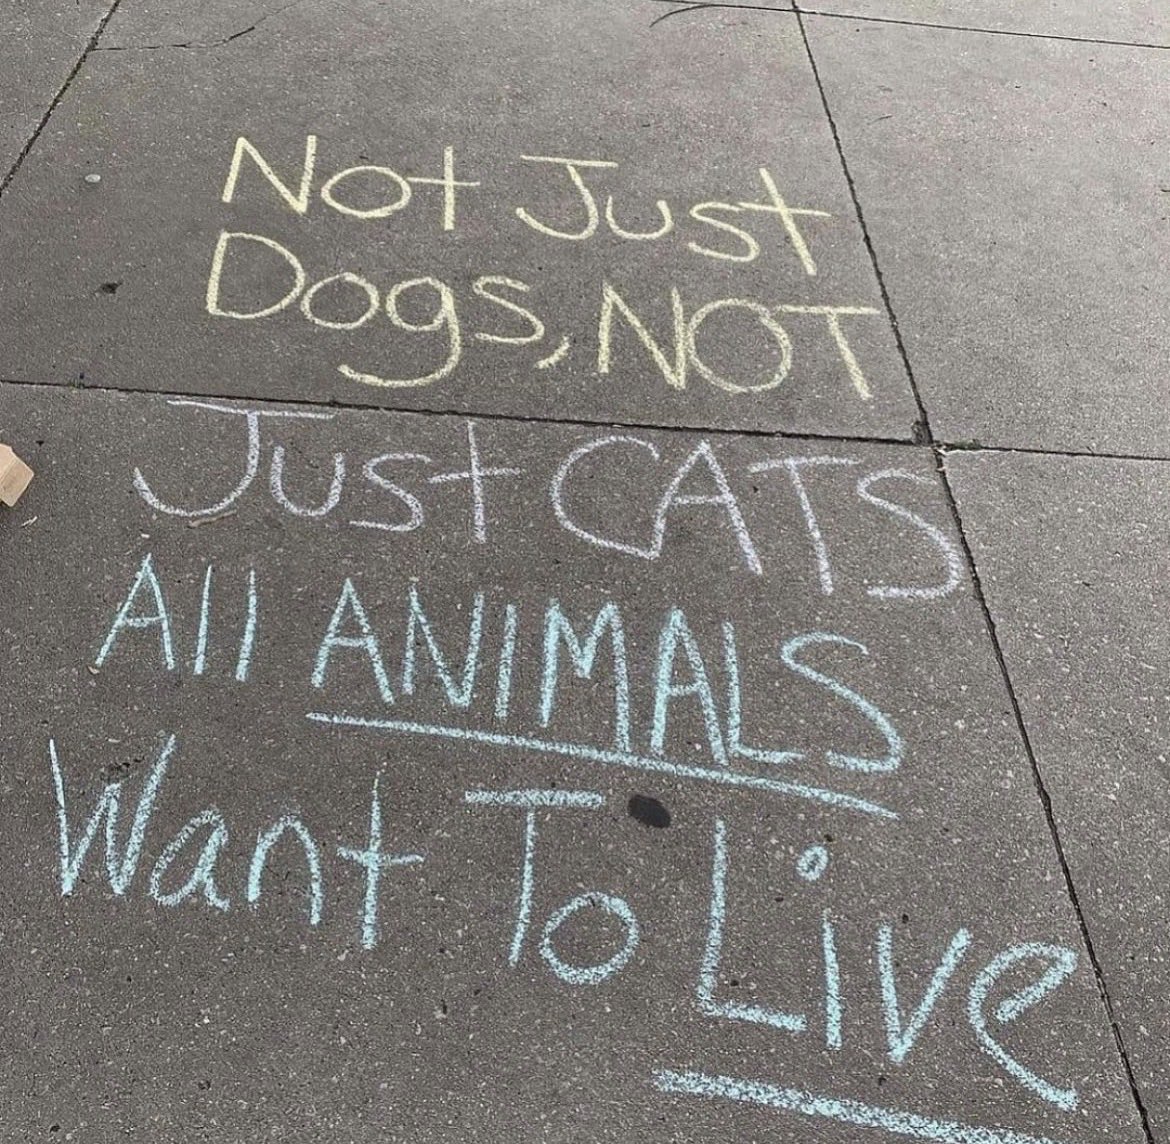 Not Just
Dogs, NOT
Just CATS
All ANIMALS
Want To Live